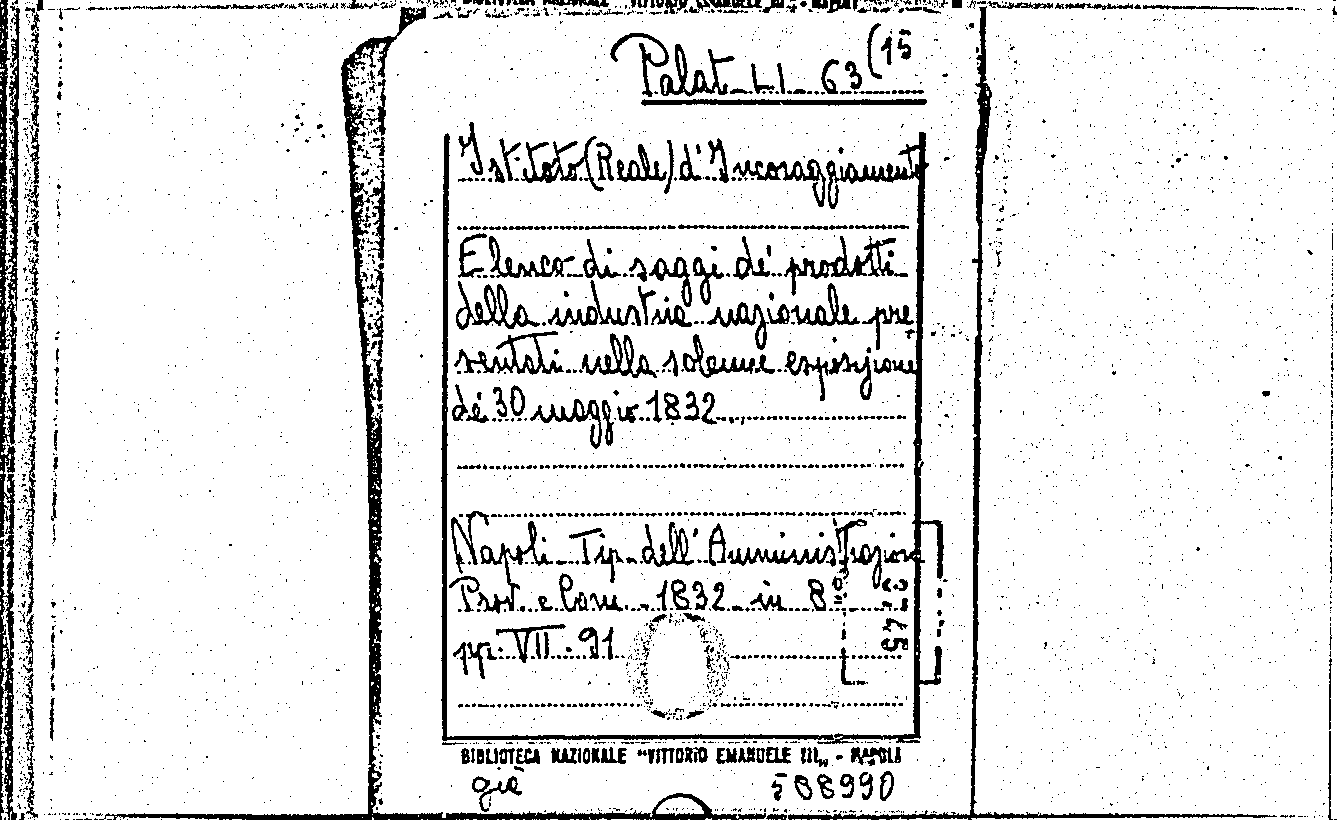 BIBLIOTECA NAZIONALE "VITTORIO EMANUELE III„ - NAPOLI
Palat. LI. 63(15
Istituto (Reale) d'Incoraggiamento
Elenco di saggi de' prodotti
della industria nazionale pre
sentati nella solenne esposizione
de' 30 maggio 1832.
Napoli Tip. dell'Amministrazione
Prov. e Com. 1832 in 8º
pp. VII. 91
BIBLIOTECA NAZIONALE "VITTORIO EMANUELE III„ - NAPOLI
già 588990